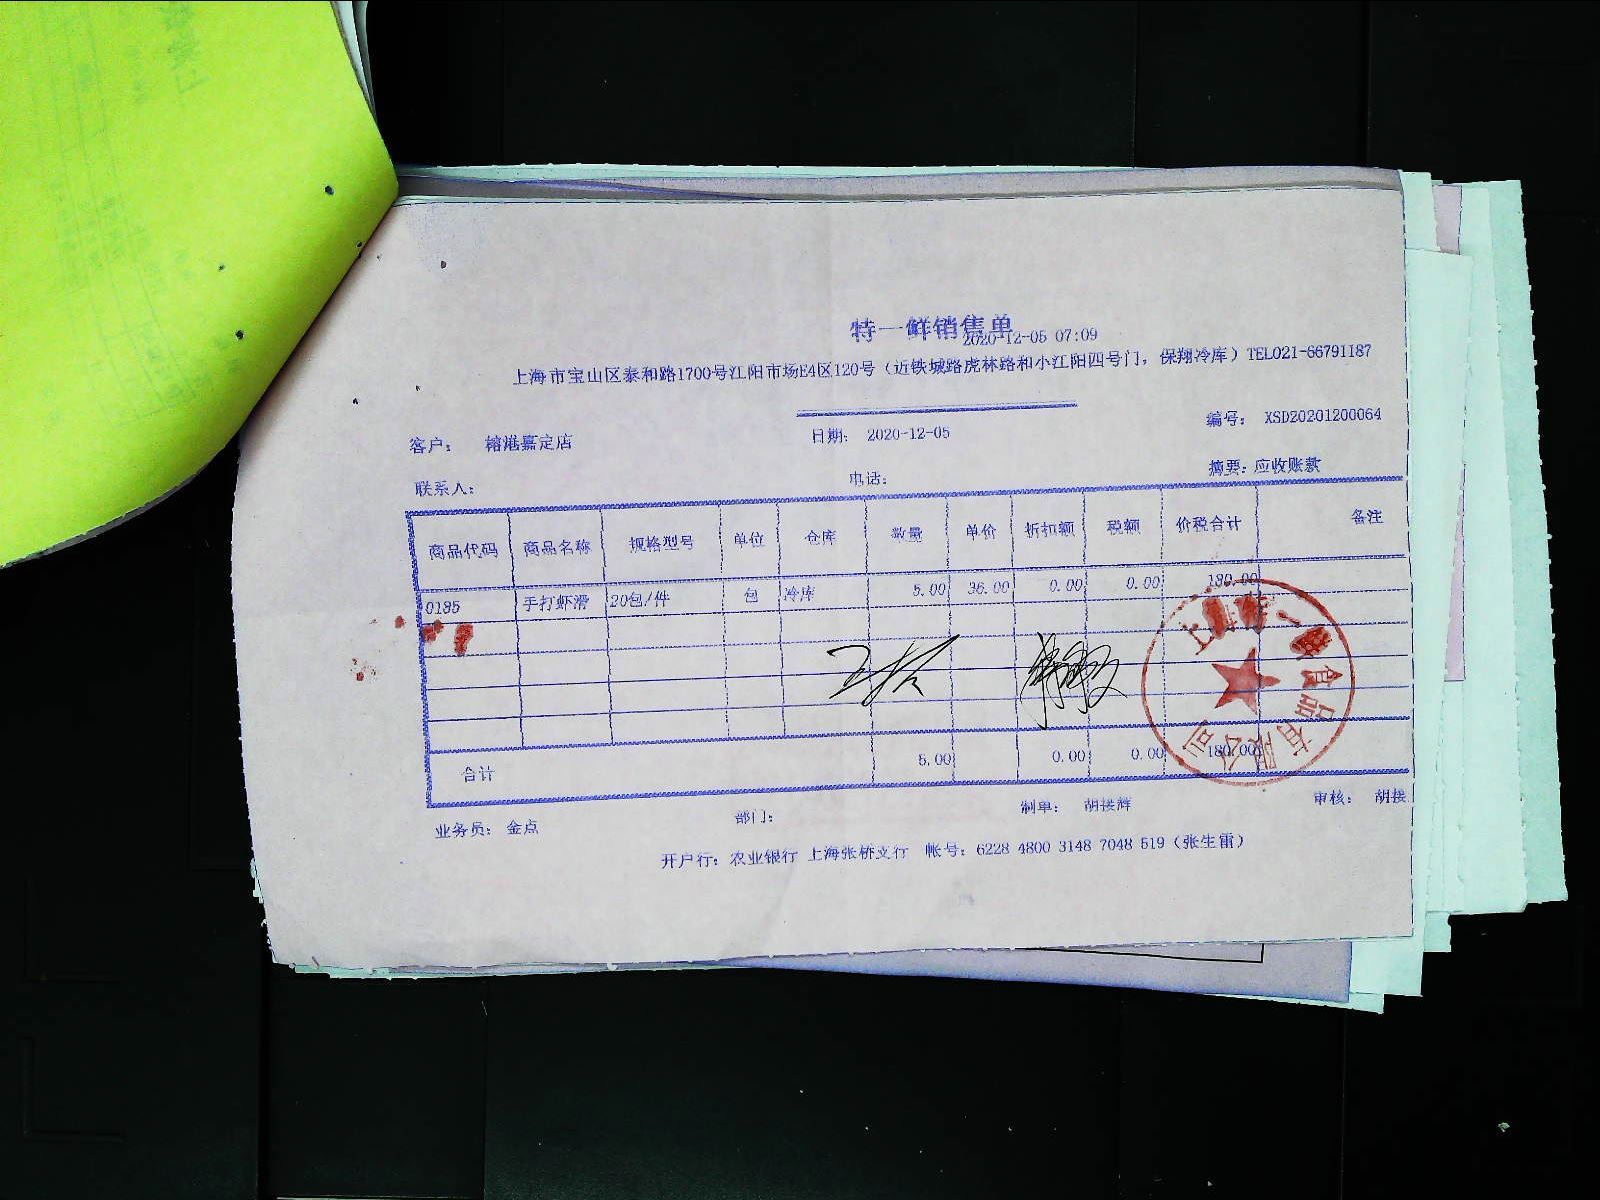 特一鲜销售单
2020-12-05 07:09
上海市宝山区泰和路1700号江阳市场E4区120号（近铁城路虎林路和小江阳四号门，保翔冷库）TEL021-66791187
编号： XSD20201200064
客户： 榕港嘉定店 日期： 2020-12-05
联系人： 电话： 摘要：应收账款
商品代码 商品名称 规格型号 单位 仓库 数量 单价 折扣额 税额 价税合计 备注
0185 手打虾滑 20包/件 包 冷库 5.00 36.00 0.00 0.00 180.00
合计 5.00 0.00 0.00 180.00
业务员： 金点 部门： 制单： 胡接辉 审核： 胡接
开户行：农业银行 上海张桥支行 帐号：6228 4800 3148 7048 519（张生雷）
上海特一鲜食品有限公司